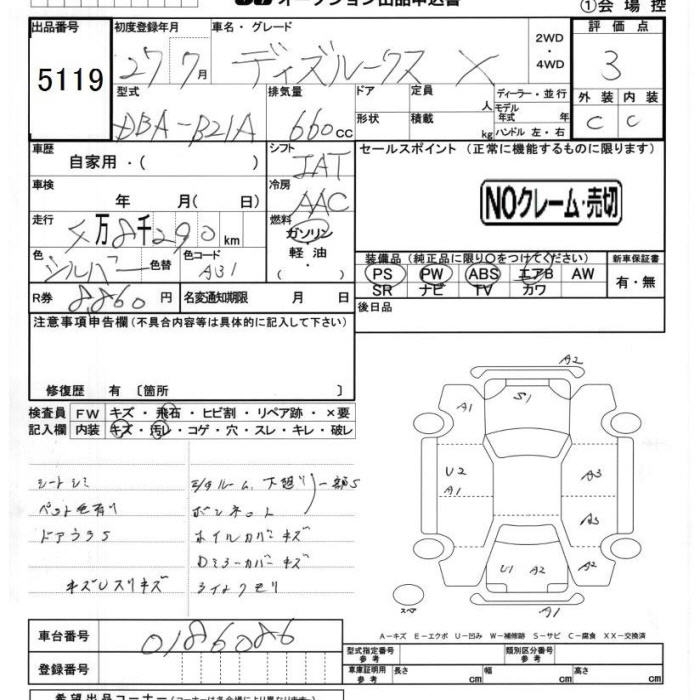 オークション出品申込書
①会場控
出品番号 初度登録年月 車名・グレード 2WD ・ 4WD 評価点
5119 27 7月 ディズルークス X 3
型式 排気量 ドア 定員 人 ディーラー・並行 外装 内装
DBA-B21A 660cc 形状 積載 kg モデル年式 年 ハンドル 左・右 C C
車歴 シフト セールスポイント (正常に機能するものに限ります)
自家用・( ) IAT
車検 冷房 NOクレーム・売切
年 月( 日) AAC
走行 燃料
万8千290km ガソリン・軽油・
色 色替 色コード 装備品(純正品に限り○をつけてください) 新車保証書
シルバー A31 PS PW ABS エアB AW 有・無
SR ナビ TV カワ
R券 8,860円 名変通知期限 月 日 後日品
注意事項申告欄(不具合内容等は具体的に記入して下さい)
修復歴 有 〔箇所 〕
検査員 FW キズ・飛石・ヒビ割・リペア跡・×要
記入欄 内装 キズ・汚レ・コゲ・穴・スレ・キレ・破レ
シートシミ
ペット毛有り ボンネット
ドアウラS ホイルカバーキズ
Dミラーカバーキズ
ライトクモリ
A2
A1 S1
U2 A3
A1
A3
U1 A2 A2
スペア A1
A-キズ E-エクボ U-凹み W-補修跡 S-サビ C-腐食 XX-交換済
車台番号 0186086
型式指定番号 参考 類別区分番号 参考
登録番号 車庫証明用 参考 長さ cm 幅 cm 高さ cm
希望出品コーナー